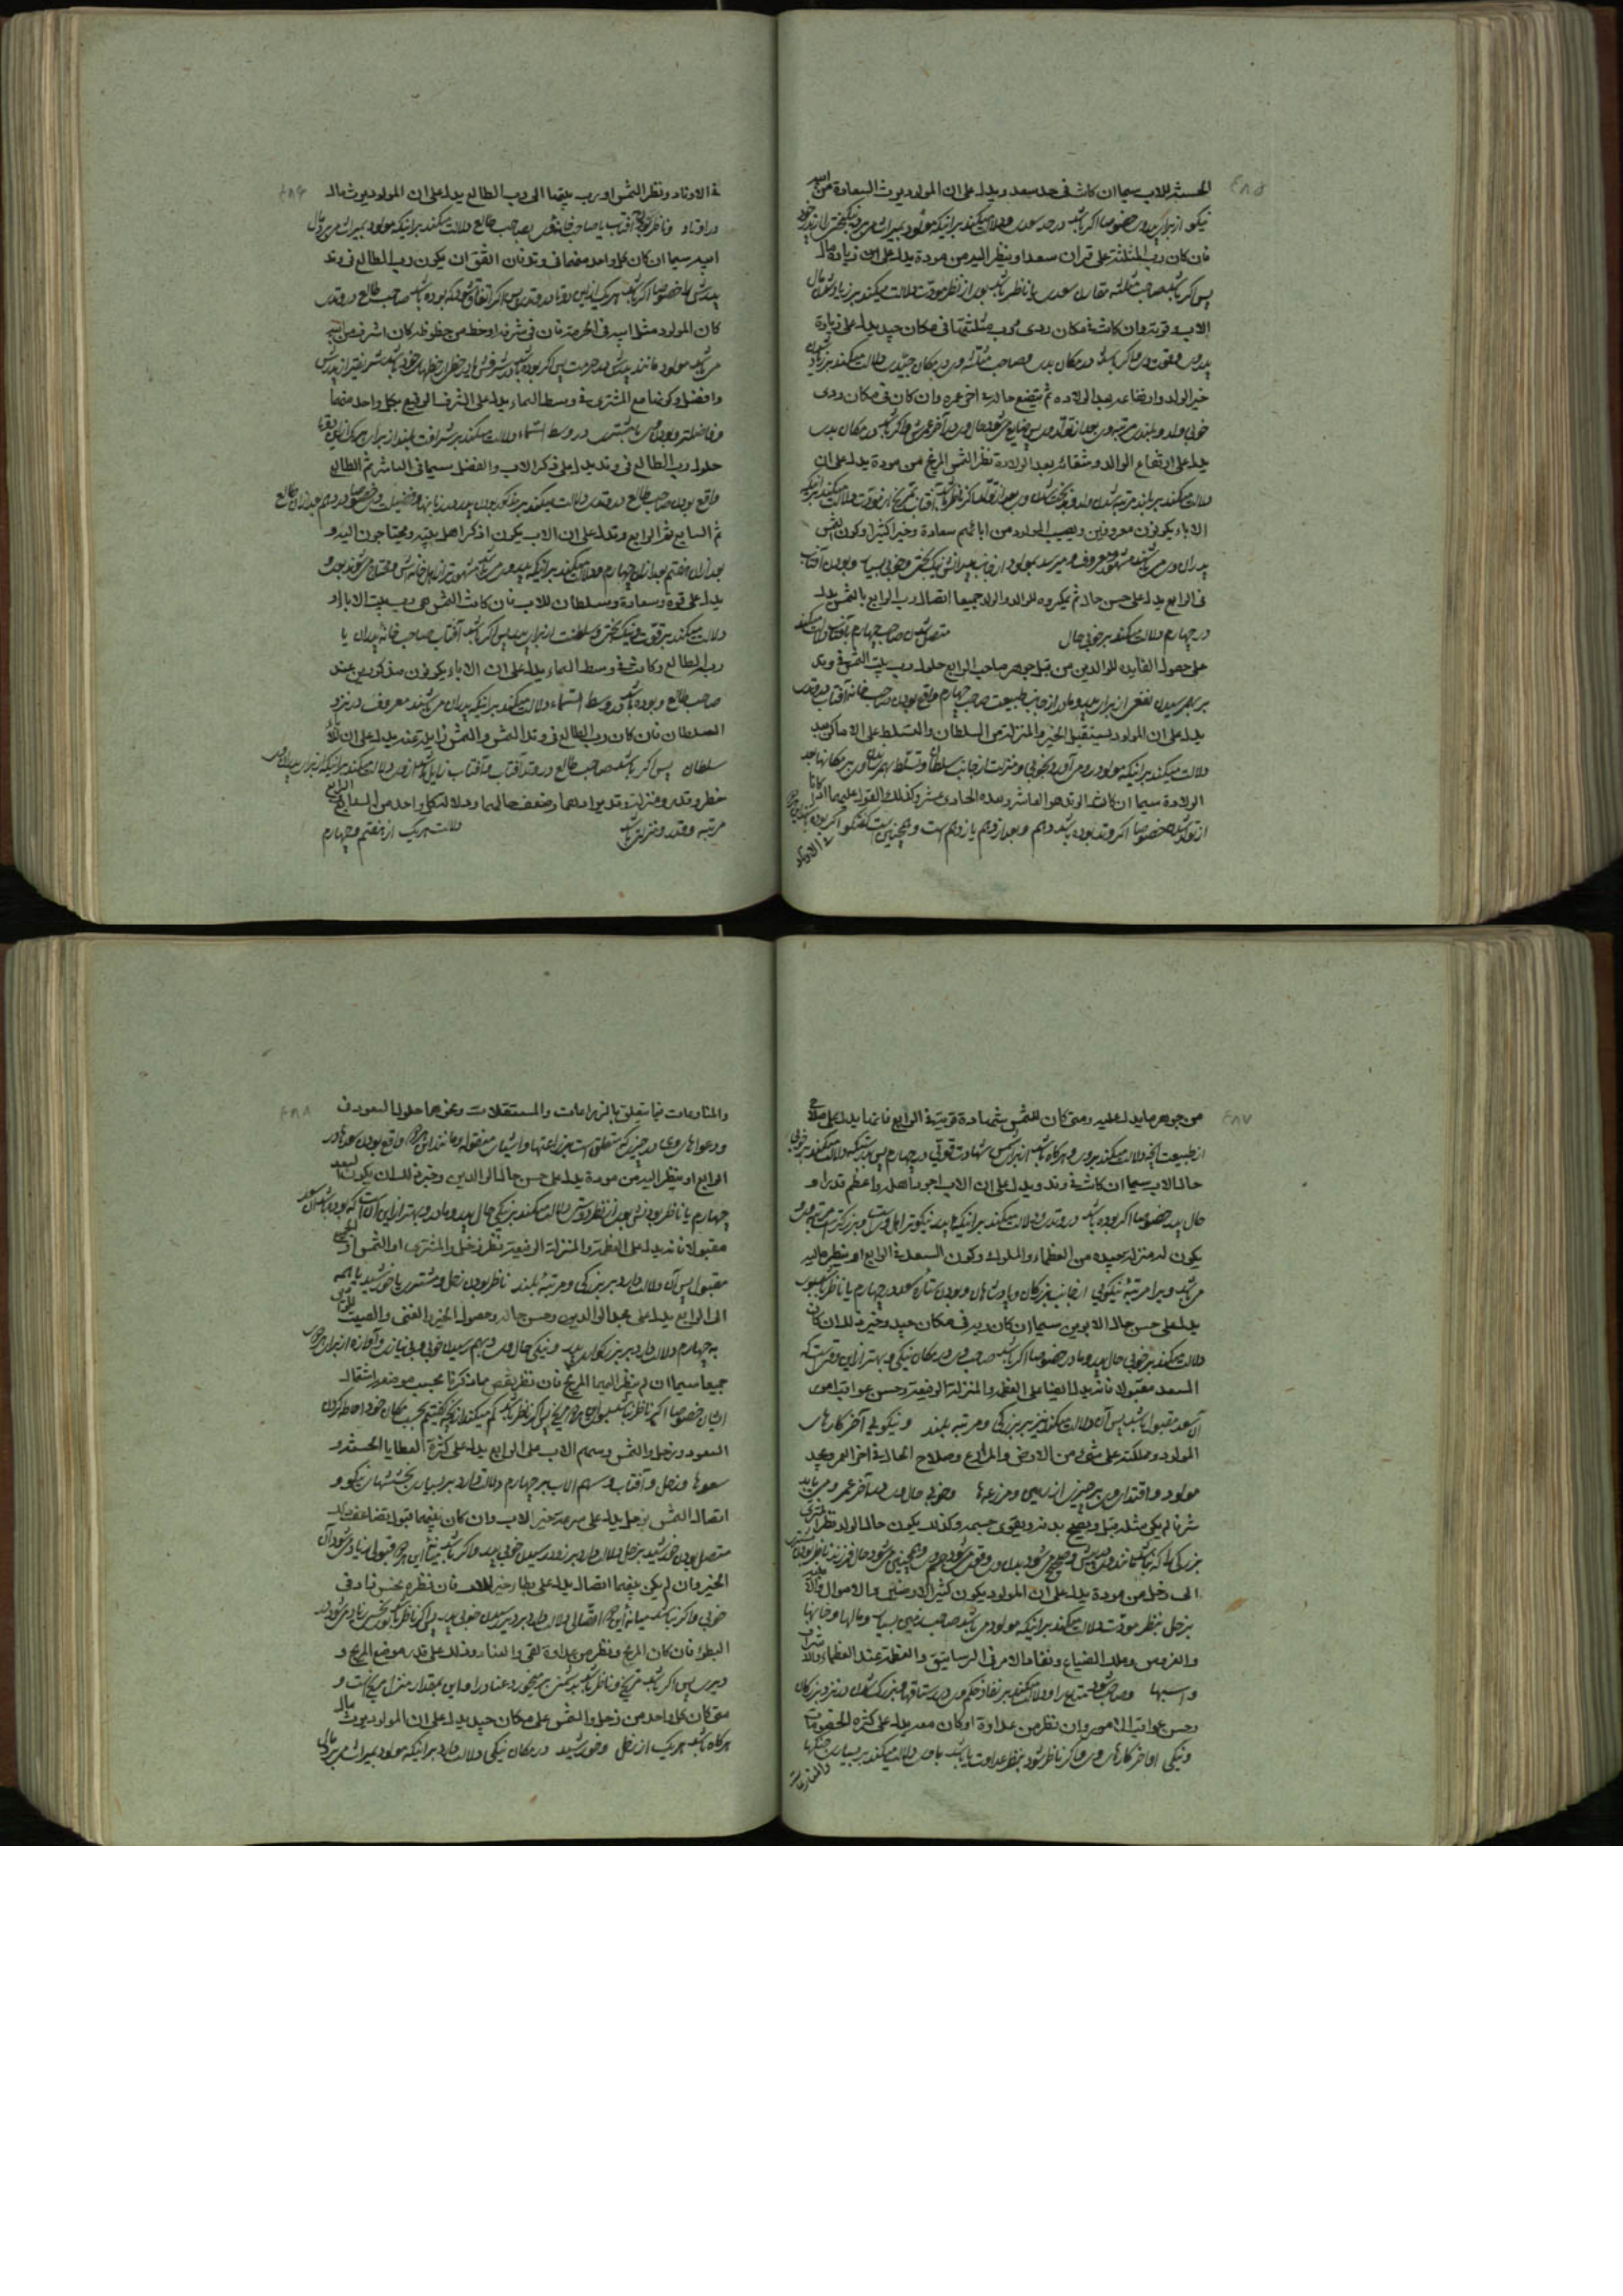 ٤٨٥
الحسنة للاب سيما ان كانت فى حد سعد ويدل على ان المولود يرث السعادة من ابيه
نيكو از براى پدر خصوصا اكر باشد در حد سعدى ودلالت ميكند برانيكه مولود بميراث مى برد نيكبختى را از پدر خود
فان كان رب المثلثة على قران سعد او ينظر اليه من مودة يدل على زيادة مال
پس اكر باشد صاحب مثلثه مقارن سعدى يا ناظر باشد بوى از نظر مودت دلالت ميكند بر زيادتى مال
الاب وقوته وان كانت فى مكان ردى ورب مثلثتها فى مكان جيد يدل على زيادة
پدر وى وقوت وى واكر باشد در مكان بد وصاحب مثلثه وى در مكان جيدى دلالت ميكند بر زيادتى
خير الوالد وارتفاعه بعد الولادة ثم يتضع حاله فى اخر عمره وان كان فى مكان ردى
خوبى والد وبلندى مرتبه وى بعد از تولد وى پس ضايع مى شود حال وى در آخر عمرش واكر باشد در مكان بدى
يدل على ارتفاع الوالد وشقائه بعد الولادة نظر الشمس المريخ من مودة يدل على ان
دلالت ميكند بر بلند مرتبه شدن والد وبدبخت شدن وى بعد از تولد اكر ناظر باشد آفتاب بمريخ از مودت دلالت ميكند برانيكه
الاباء يكونون معروفين ويصيب المولود من ابائهم سعادة وخيرا كثيرا وكون الشمس
پدران وى مى باشند مشهور ومعروف وميرسد بمولود از جانب پدرانش نيك بختى وخوبى بسيار وبودن آفتاب
فى الرابع يدل على حسن حاله ثم مكروه للوالد والولد جميعا اتصال رب الرابع بالشمس يدل
در چهارم دلالت ميكند بر خوبى حال متصل شدن صاحب چهارم بآفتاب دلالت ميكند
على حصول الفايده للوالدين من قبل جوهر صاحب الرابع حلول رب بيت الشمس فى وتد
بر بهم رسيدن نفعى از براى پدر ومادر از جانب طبيعت صاحب چهارم واقع بودن صاحب خانه آفتاب در وتدى
يدل على ان المولود يستقبل الخير والمنزلة من السلطان والتسلط على الاماكن بعد
دلالت ميكند برانيكه مولود رو مى آورد بخوبى ومنزلت از جانب سلطان وتسلط بهم رساندن بر مكانها بعد
الولادة سيما ان كانت الوتد هو العاشر وبعده الحادى عشر وكذلك القول عليهما اذا كانا
از تولد خصوصا اكر وتد بوده باشد دهم وبعد از دهم يازدهم است وهمچنين است كفتكو اكر بوده باشند اين هر دو
فى الاوتاد
٤٨٦
فى الاوتاد ونظر الشمس او رب بيتها الى رب الطالع يدل على ان المولود يرث مال
در اوتاد وناظر بودن آفتاب يا صاحب خانه اش بصاحب طالع دلالت ميكند برانيكه مولود بميراث مى برد مال
ابيه سيما ان كان كل واحد منهما فى وتد فان اتفق ان يكون رب الطالع فى وتد
پدرش را خصوصا اكر باشد هر يك از اين دو تا در وتدى پس اكر اتفاق شود كه بوده باشد صاحب طالع در وتدى
كان المولود مثل ابيه فى الحرمة فان فى شرفه او حظ من حظوظه كان اشرف من ابيه
مى باشد مولود مانند پدرش در حرمت پس اكر بوده باشد در شرفش يا در حظى از حظهاى خود باشد شريفتر از پدرش
وافضل وكونها مع المشترى فى وسط السماء يدل على الشرف الرفيع لكل واحد منهما
وفاضلتر وبودن وى با مشترى در وسط السماء دلالت ميكند بر شرافت بلند از براى هر يك از اين دو تا
حلول رب الطالع فى وتد يدل على ذكر الاب والفضل سيما فى العاشر ثم الطالع
واقع بودن صاحب طالع در وتدى دلالت ميكند بر مذكور بودن پدر در زبانها وفضيلت وى خصوصا در دهم بعد از آن طالع
ثم السابع ثم الرابع وتدل على ان الاب يكون اذكر اهل بيته ومحتاجون اليه و
بعد از آن هفتم بعد از آن چهارم ودلالت ميكند برانيكه پدر وى مى باشد مشهورتر از اهل خانه اش ومحتاج مى شوند بوى و
يدل على قوة وسعادة وسلطان للاب فان كانت الشمس هى رب بيت الاباء او
دلالت ميكند بر قوت ونيك بختى وسلطنت از براى پدر پس اكر باشد آفتاب صاحب خانه پدران يا
رب الطالع وكانت فى وسط السماء يدل على ان الاباء يكونون مذكورين عند
صاحب طالع وبوده باشد در وسط السماء دلالت ميكند برانيكه پدران مى باشند معروف در نزد
السلطان فان كان رب الطالع فى وتد الشمس والشمس زايله عنه يدل على ان للاب
سلطان پس اكر باشد صاحب طالع در وتد آفتاب وآفتاب زايل باشد از وى دلالت ميكند برانيكه از براى پدر
خطر وقدر ومنزلة وتدبير امرهما وضعف حالهما ودلالة كل واحد من السابع والرابع
مرتبه وقدر ومنزلتى باشد دلالت هر يك از هفتم وچهارم
٤٨٧
من جوهر ما يدل عليه ومتى كان للشمس شهادة قوية فى الرابع فانها يدل على صلاح
از طبيعت آنچه دلالت ميكند بر وى وهركاه باشد از براى شمس شهادت قوى در چهارم پس بدرستيكه دلالت ميكند بر خوبى
حال الاب سيما ان كانت فى وتد ويدل على ان الاب اجود اهله واعظم قدرا و
حال پدر خصوصا اكر بوده باشد در وتدى ودلالت ميكند برانيكه پدر نيكوتر اهل وى است وبزركتر است مرتبه وى
يكون له منزلة جيده من العظماء والملوك وكون السعد فى الرابع او ينظر اليه
مى باشد ويرا مرتبه نيكوئى از جانب بزركان وپادشاهان وبودن ستاره سعد در چهارم يا ناظر باشد بوى
يدل على حسن حال الابوين سيما ان كان ربه فى مكان جيد وخير من ذلك ان كان
دلالت ميكند بر خوبى حال پدر ومادر خصوصا اكر باشد صاحب وى در مكان نيكى وبهتر از اين وقتى است كه
السعد مقبولا فانه يدل ايضا على العظم والمنزلة الرفيعة وحسن عواقب امور
آن سعد مقبول باشد پس آن دلالت ميكند نيز بر بزركى ومرتبه بلند ونيكوئى آخر كارهاى
المولود وملكته على شىء من الارض والمزارع وصلاح الحال فى اخر العمر ويجد
مولود واقتدار وى بر چيزى از زمين ومزرعه ها وخوبى حال وى در آخر عمر ومى يابد
شرفا لم يكن مثله قبل ويصح بدنه ويقوى جسمه وكذلك يكون حال الولد نظر المشترى
بزركى را كه نباشد مانند وى در پيش وصحيح مى شود بدن وى وقوى مى شود جسم وى وهمچنين مى شود حال فرزند ناظر بودن مشترى
الى زحل من مودة يدل على ان المولود يكون كثير الارضين والاموال
بزحل بنظر مودت دلالت ميكند برانيكه مولود مى باشد صاحب زمين بسيار ومالها وخانها
والفروس وملك الضياع ونفاذ الامر فى الرساتيق والعظم عند العظماء والاشراف
واسبها وصاحب ودلالت ميكند بر نفاذ حكم وى در رستاقها وبزرك شدن در نزد بزركان
وحسن عواقب الامور وان نظر من عداوة او كان معه يدل على كثرة الخصومات
ونيكى اواخر كارهاى وى واكر ناظر شود بنظر عداوت يا باشد با وى دلالت ميكند بر بسيارى جنكها
والمنازعات
٤٨٨
والمنازعات فيما يتعلق بالزراعات والمستقلات وغيرهما حلول السعود فى
ودعواها وى در چيزى كه متعلق است بزراعتها واشياى منقوله ومانند اين هر دو واقع بودن سعدها در
الرابع او ينظر اليه من مودة يدل على حسن حال الوالدين وخير من ذلك ان يكون السعد
چهارم يا ناظر بودنش بوى از نظر دوستى دلالت ميكند بر نيكى حال پدر ومادر وبهتر از اين آن است كه بوده باشد آن سعد
مقبولا فانه يدل على العظمة والمنزلة الرفيعة نظر زحل والمشترى او الشمس او الجميع
مقبول پس آن دلالت دارد بر بزركى ومرتبه بلند ناظر بودن زحل ومشترى يا خورشيد يا همه
الى الرابع يدل على مجد الوالدين وحسن حاله وحصول الخير والغنى والصيت للوالدين
به چهارم دلالت دارد بر بزركوارى پدر ونيكى حال وى وبهم رسيدن خوبى وبى نيازى وآوازه از براى هر دو
جميعا سيما ان لم ينظر اليهما المريخ فان نظر ينقص ما ذكرنا بحسب موضعه اشتمال
ايشان خصوصا اكر ناظر نباشد بسوى اين هر دو مريخ پس اكر ناظر باشد كم ميكند از آنچه كفتيم بحسب مكان خود احاطه كردن
السعود وزحل والشمس وسهم الاب على الرابع يدل على كثرة العطايا الحسنة و
سعدها وزحل وآفتاب وسهم الاب بر چهارم دلالت دارد بر بسيارى بخششهاى نيكو و
اتصال الشمس بزحل يدل على سرعة خير الاب وان كان بينهما قبول تضاعف ذلك
متصل بودن خورشيد بزحل دلالت دارد بر زود رسيدن خوبى پدر واكر باشد ميانه اين هر دو قبولى زياد مى شود آن
الخير وان لم يكن بينهما اتصال يدل على بطاء خير للاب فان نظره نحس زاد فى
خوبى واكر نباشد ميانه اين هر دو اتصالى دلالت دارد بر دير رسيدن خوبى پدر پس اكر ناظر باشد بوى نحسى زياد مى شود در
البطؤ فان كان المريخ ونظر من عداوة لقى والعناد وذلك على قدر موضع المريخ و
ديرى پس اكر باشد مريخ وناظر باشد بدشمنى برميخورد عناد را واين بمقدار منزل مريخ است و
متى كان كل واحد من زحل والشمس على مكان جيد يدل على ان المولود يرث مال
هركاه باشد هر يك از زحل وخورشيد در مكان نيكى دلالت دارد برانيكه مولود بميراث مى برد مال